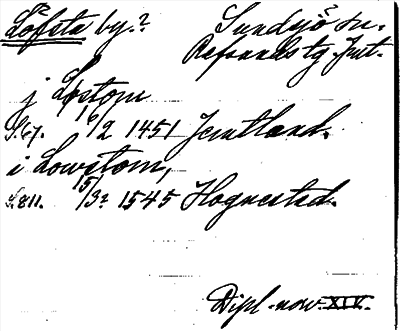 Löfsta by.? Sundsjö sn.
Refsunds tg. Jmt.
j Løstom
S. 67. 16/2 1451 Jemtland.
i Lowstom,
S. 811. 15/3? 1545 Hognested.
Dipl. norv. XIV.